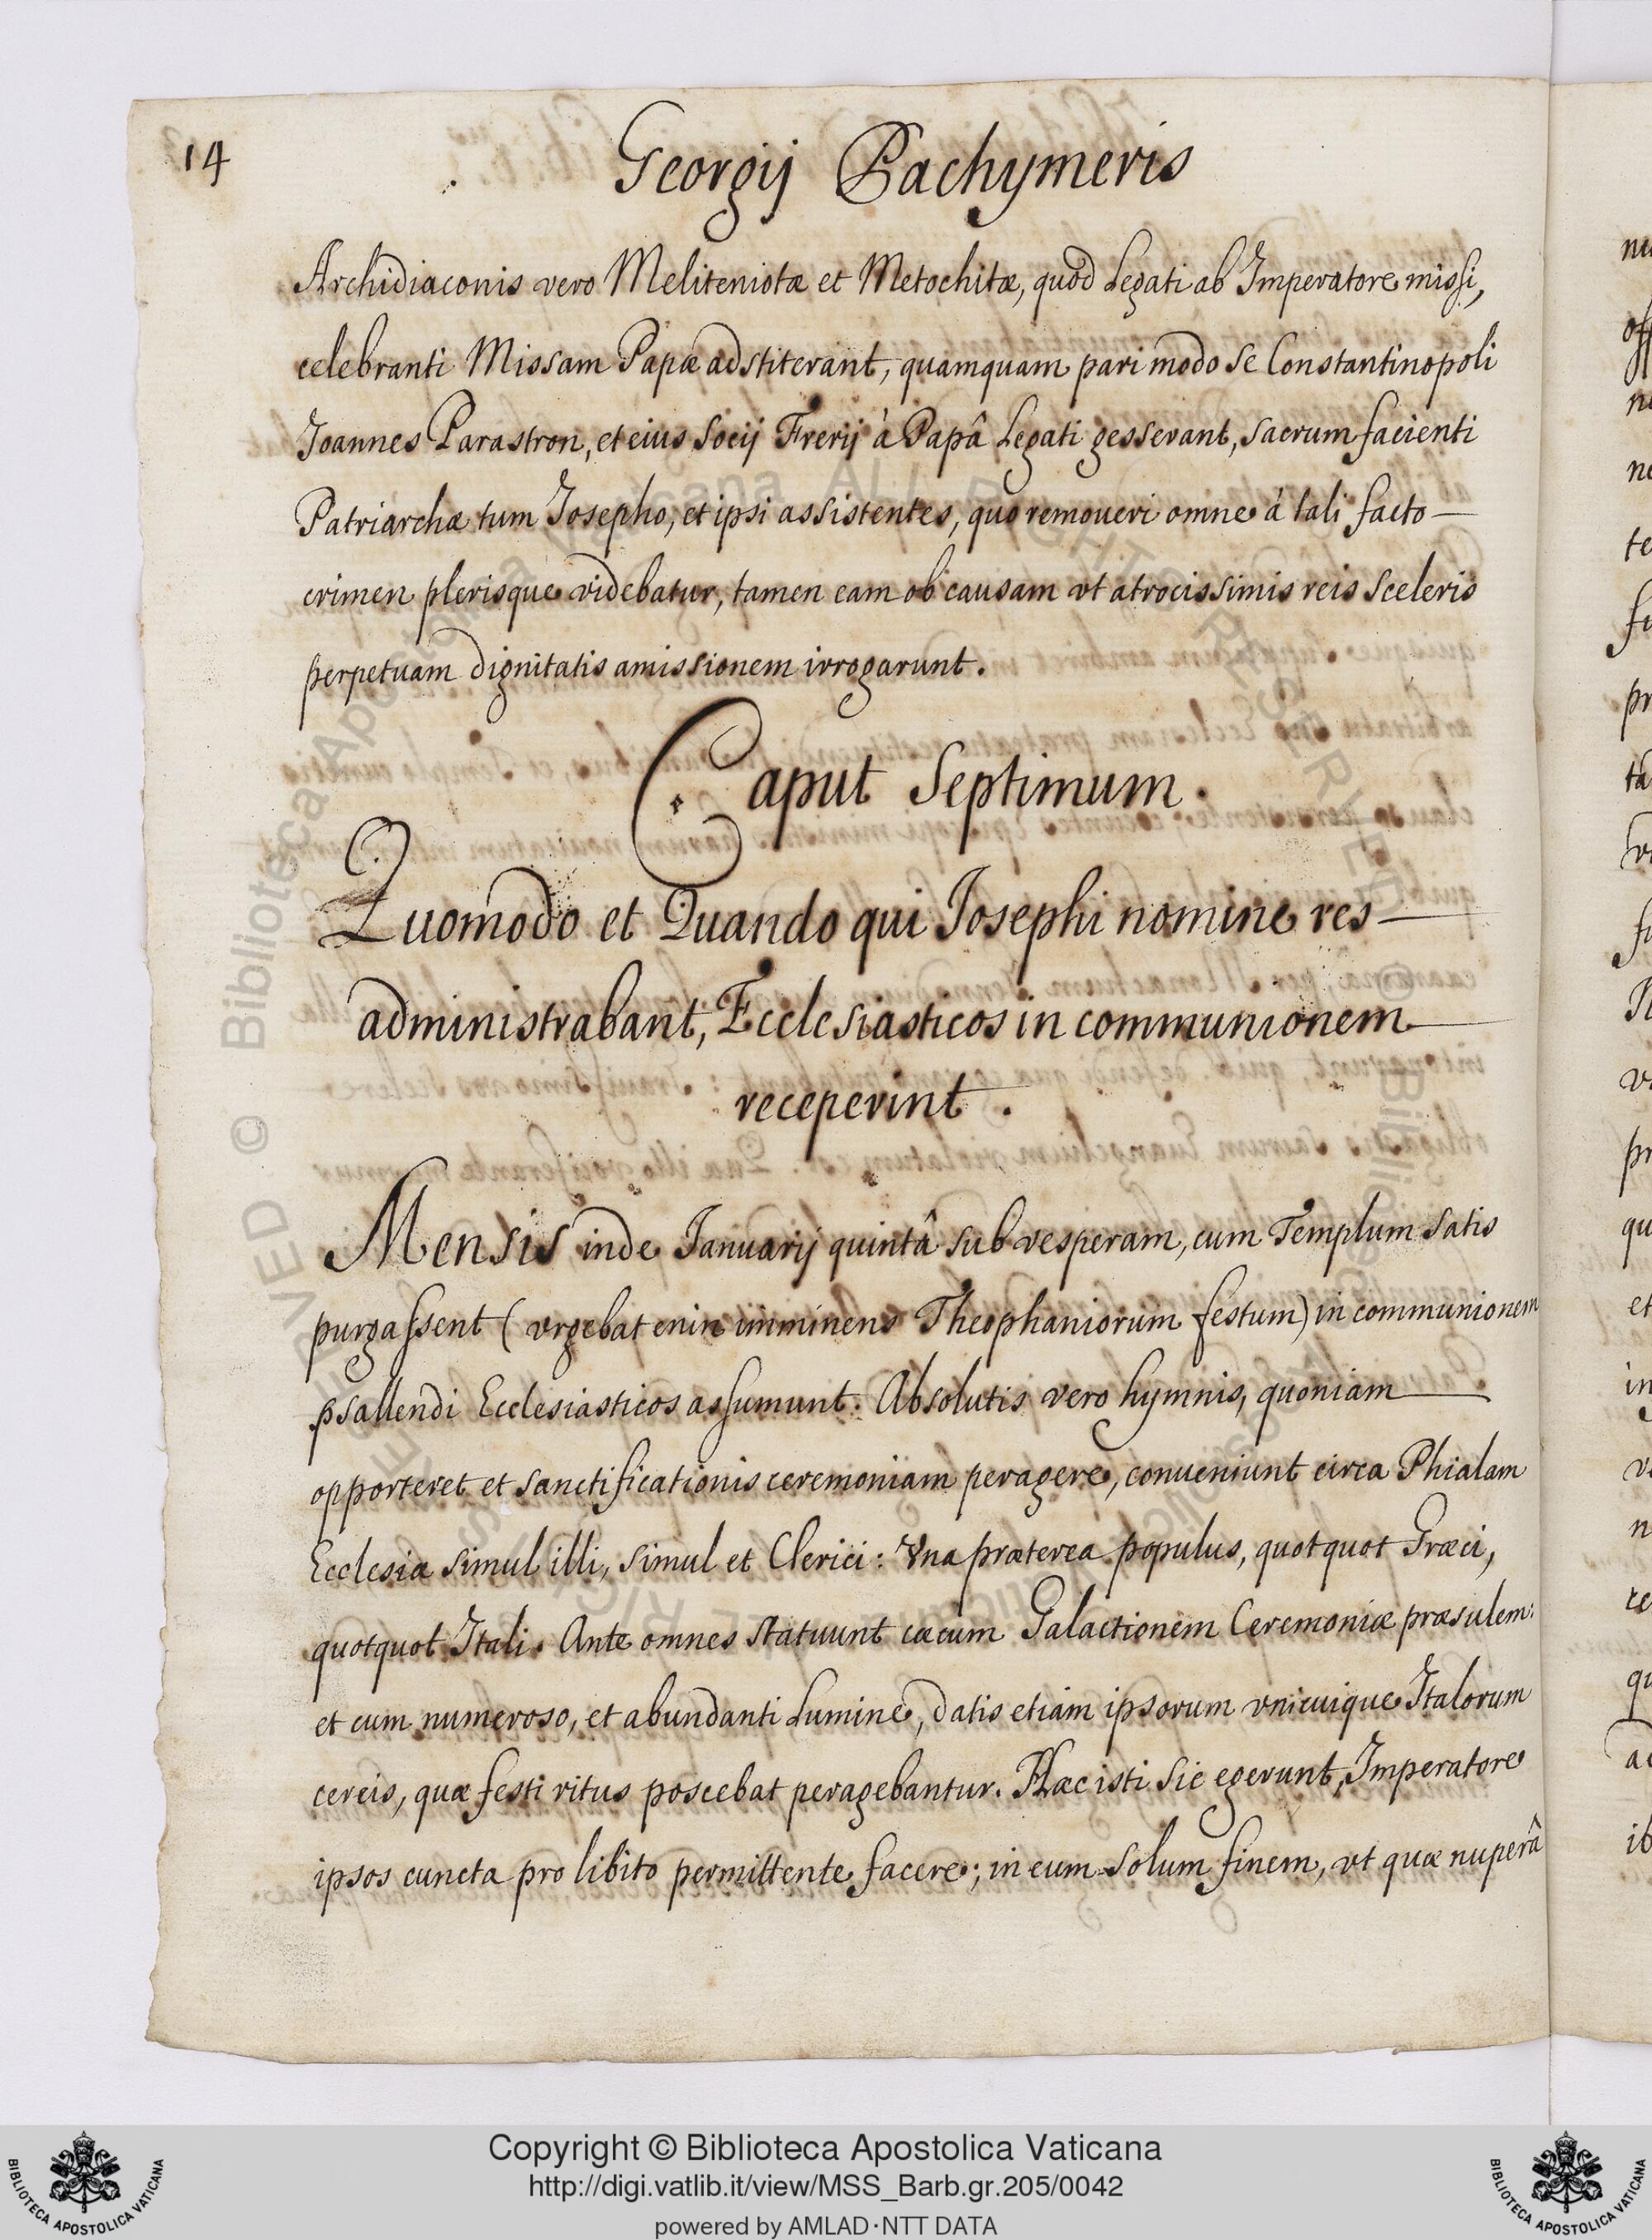 14
Georgij Pachymeris
Archidiaconis vero Meliteniotæ et Metochitæ, quod Legati ab Imperatore missi,
celebranti Missam Papæ adstiterant, quamquam pari modo se Constantinopoli
Joannes Parastron, et eius Socij Frerij à Papâ Legati gesserant, sacrum facienti
Patriarchæ tum Josepho, et ipsi assistentes, quo remoueri omne à tali facto
crimen plerisque videbatur, tamen eam ob causam vt atrocissimis reis sceleris
perpetuam dignitatis amissionem irrogarunt.
Caput Septimum.
Quomodo et Quando qui Josephi nomine res
administrabant, Ecclesiasticos in communionem
receperint.
Mensis inde Januarij quintâ sub vesperam, cum Templum satis
purgassent (vrgebat enim imminens Theophaniorum festum) in communionem
psallendi Ecclesiasticos assumunt. Absolutis vero hymnis, quoniam
opporteret et sanctificationis ceremoniam peragere, conueniunt circa Phialam
Ecclesiæ simul illi, simul et Clerici: Vna præterea populus, quotquot Græci,
quotquot Itali. Ante omnes statuunt cæcum Galactionem Ceremoniæ præsulem:
et cum numeroso, et abundanti Lumine, datis etiam ipsorum vnicuique Italorum
cereis, quæ festi ritus poscebat peragebantur. Hæc isti sic egerunt, Imperatore
ipsos cuncta pro libito permittente facere; in eum solum finem, vt quæ nuperâ
Copyright © Biblioteca Apostolica Vaticana
http://digi.vatlib.it/view/MSS_Barb.gr.205/0042
powered by AMLAD·NTT DATA
BIBLIOTECA APOSTOLICA VATICANA
BIBLIOTECA APOSTOLICA VATICANA